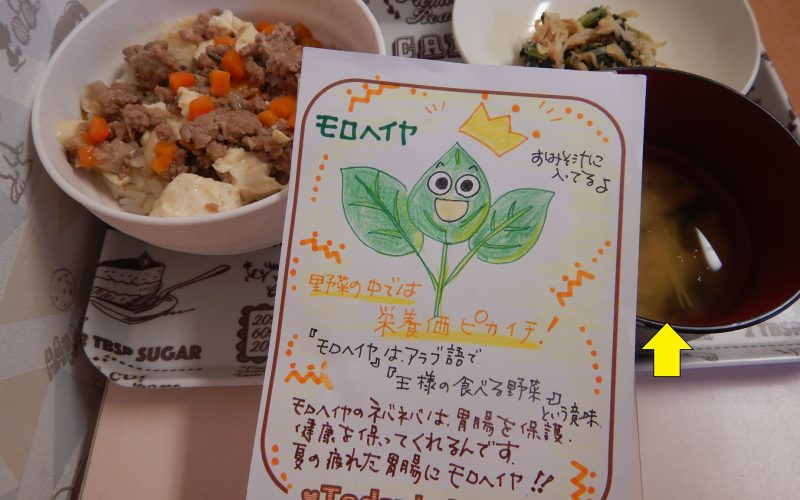 モロヘイヤ
おみそ汁に
入ってるよ
野菜の中では
栄養価ピカイチ!
『モロヘイヤ』は、アラブ語で
『王様の食べる野菜』
という意味。
モロヘイヤのネバネバは、胃腸を保護。
健康を保ってくれるんです。
夏の疲れた胃腸にモロヘイヤ!!
TBSP SUGAR